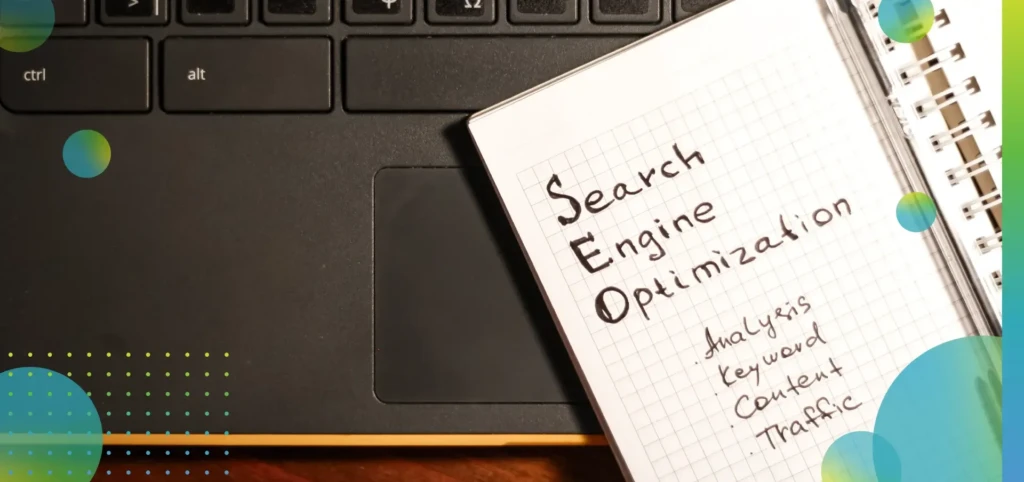 ctrl
alt
Search
Engine
Optimization
. Analysis
. Keyword
. Content
. Traffic